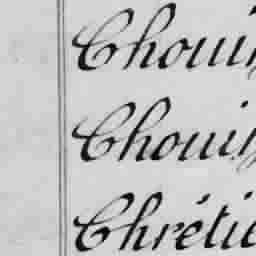 Chouin
Chouin
Chrétie